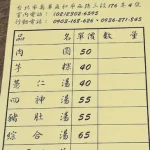 台北市萬華區和平西路三段176年4號
室內電話：(02)2302-6595
行動電話：0903-168-626、0936-271-843
品名 單價 數量
肉圓 50
芋粿 40
薏仁湯 40
四神湯 55
豬肚湯 55
綜合湯 65